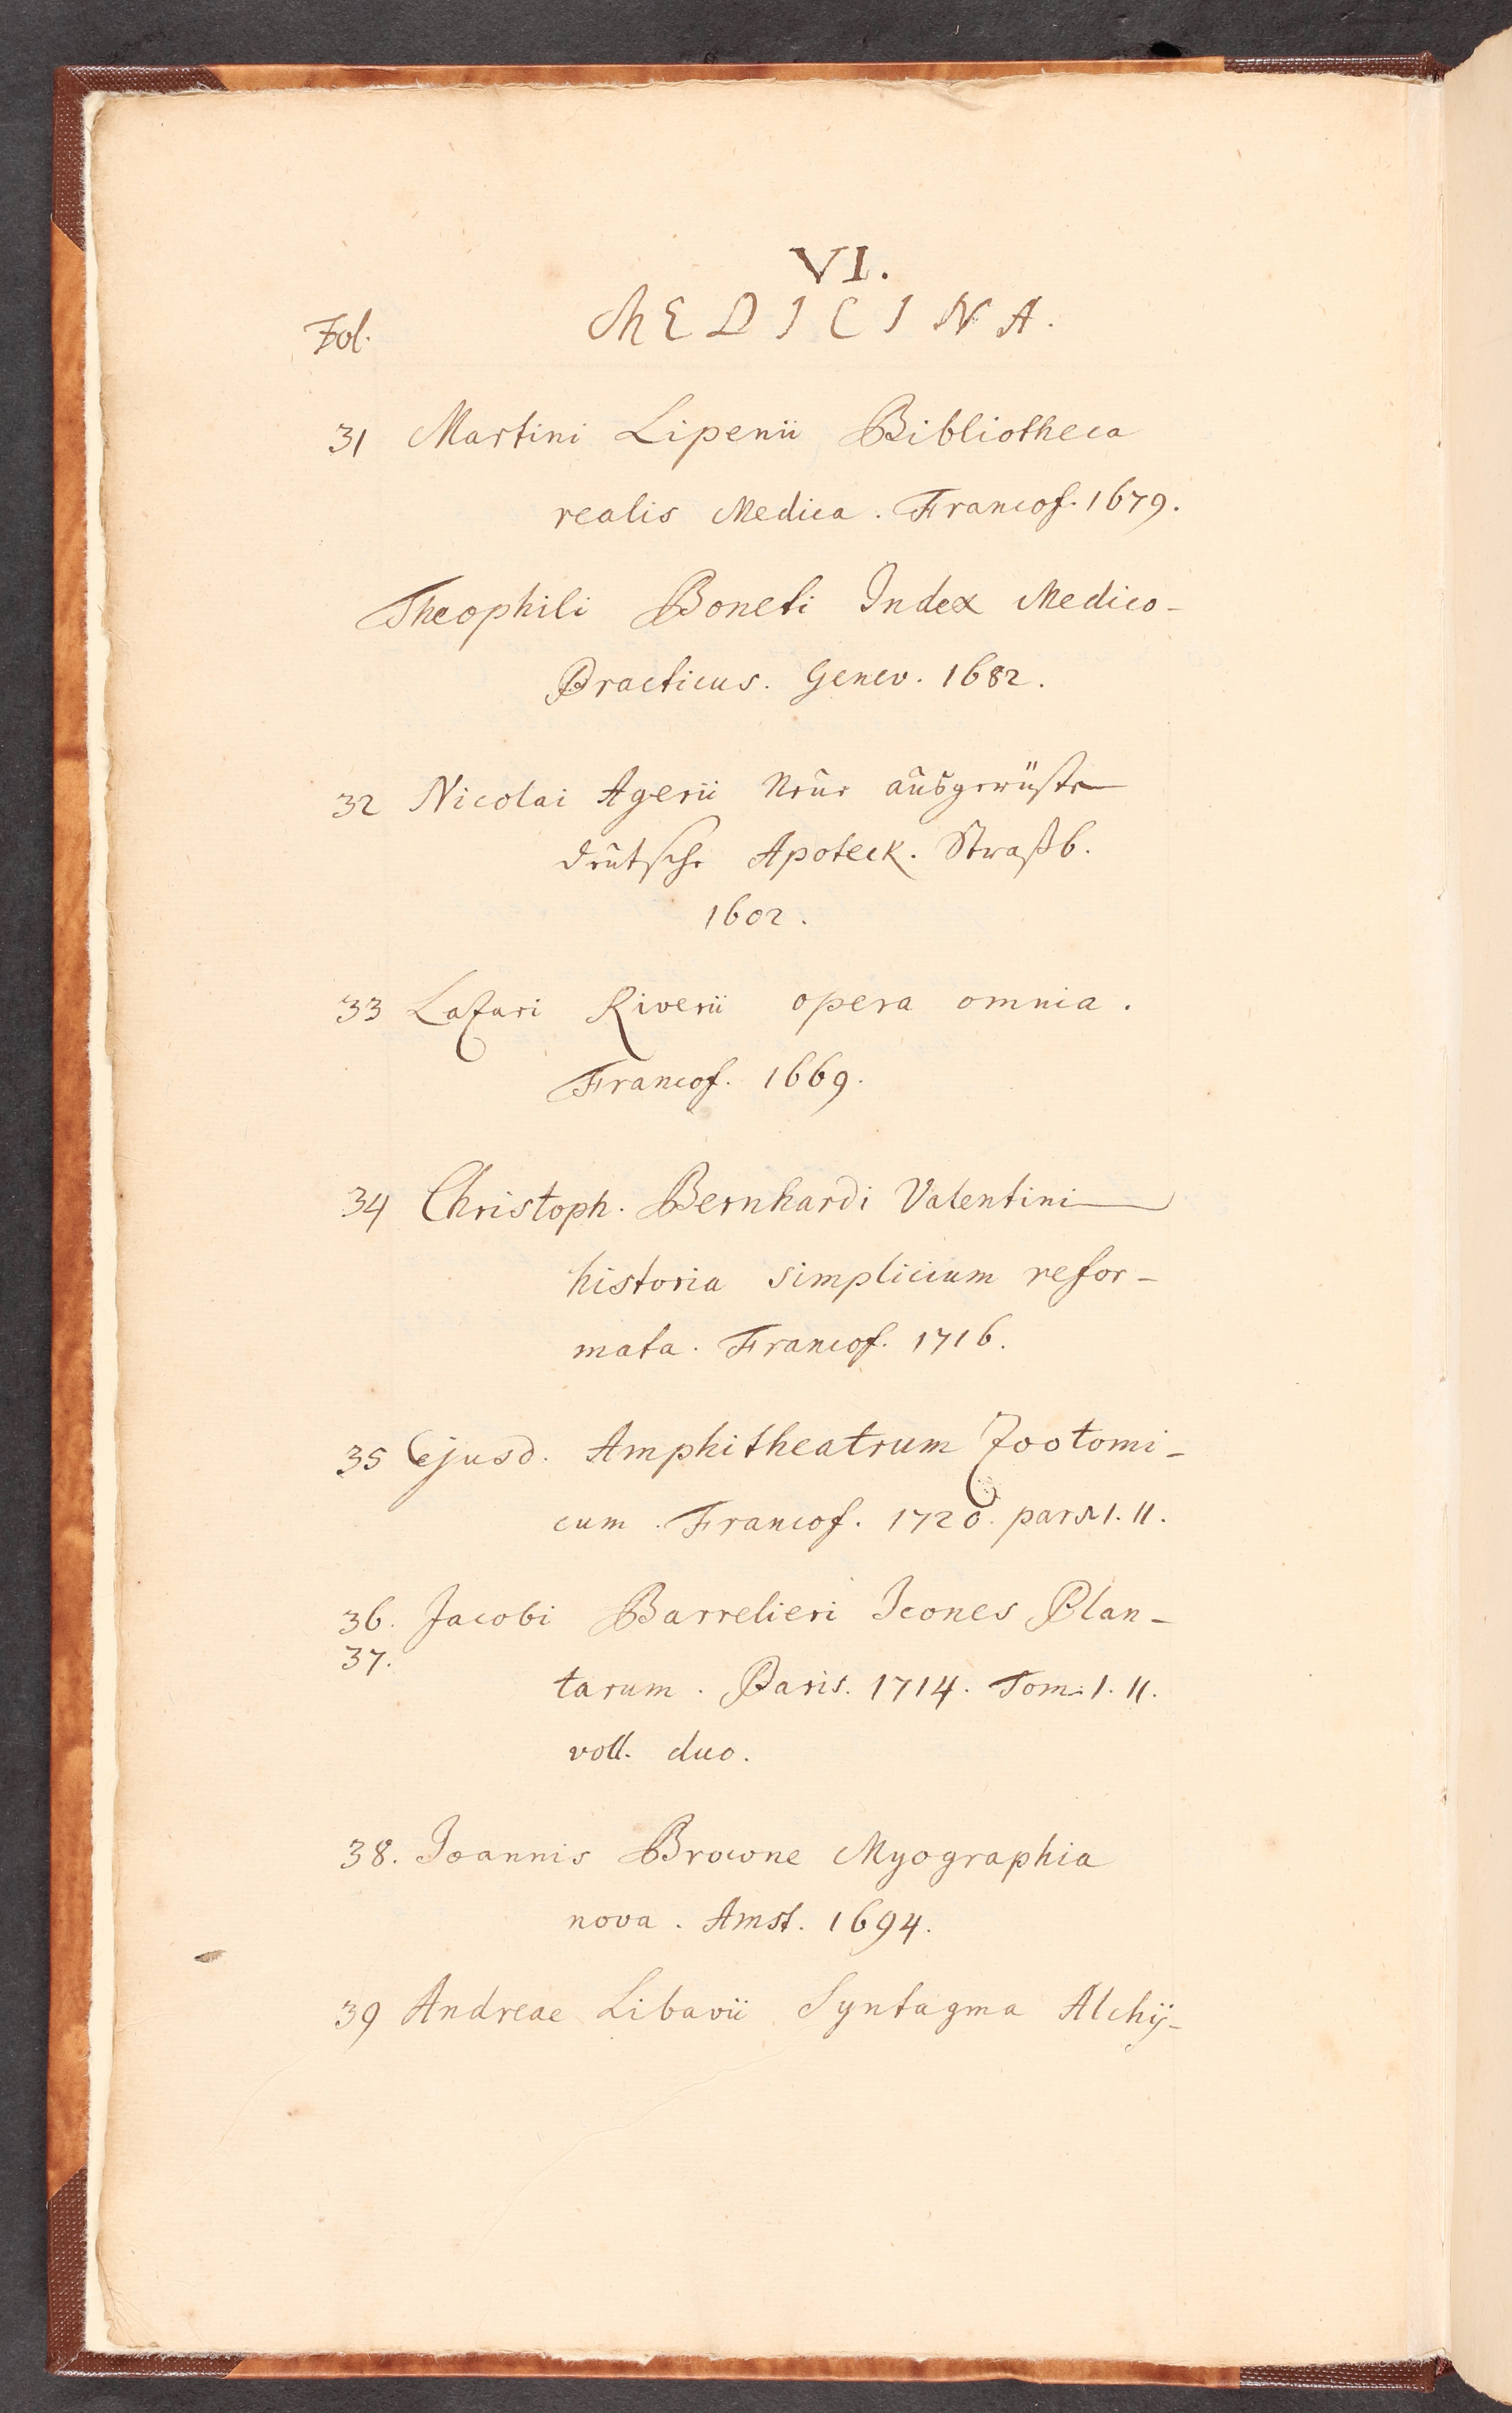 VI.
Fol. MEDICINA.
31 Martini Lipenii Bibliotheca
realis Medica. Francof. 1679.
Theophili Boneti Index Medico-
Practicus. Genev. 1682.
32 Nicolai Agerii Neue ausgerüste
deutsche Apoteck. Straßb.
1602.
33 Lazari Riverii opera omnia.
Francof. 1669.
34 Christoph. Bernhardi Valentini
historia simplicium refor-
mata. Francof. 1716.
35 Ejusd. Amphitheatrum Zootomi-
cum. Francof. 1720. pars I. II.
36. Jacobi Barrelieri Icones Plan-
37.
tarum. Paris. 1714. Tom. I. II.
voll. duo.
38. Joannis Browne Myographia
nova. Amst. 1694.
39 Andreae Libavii Syntagma Alchÿ-